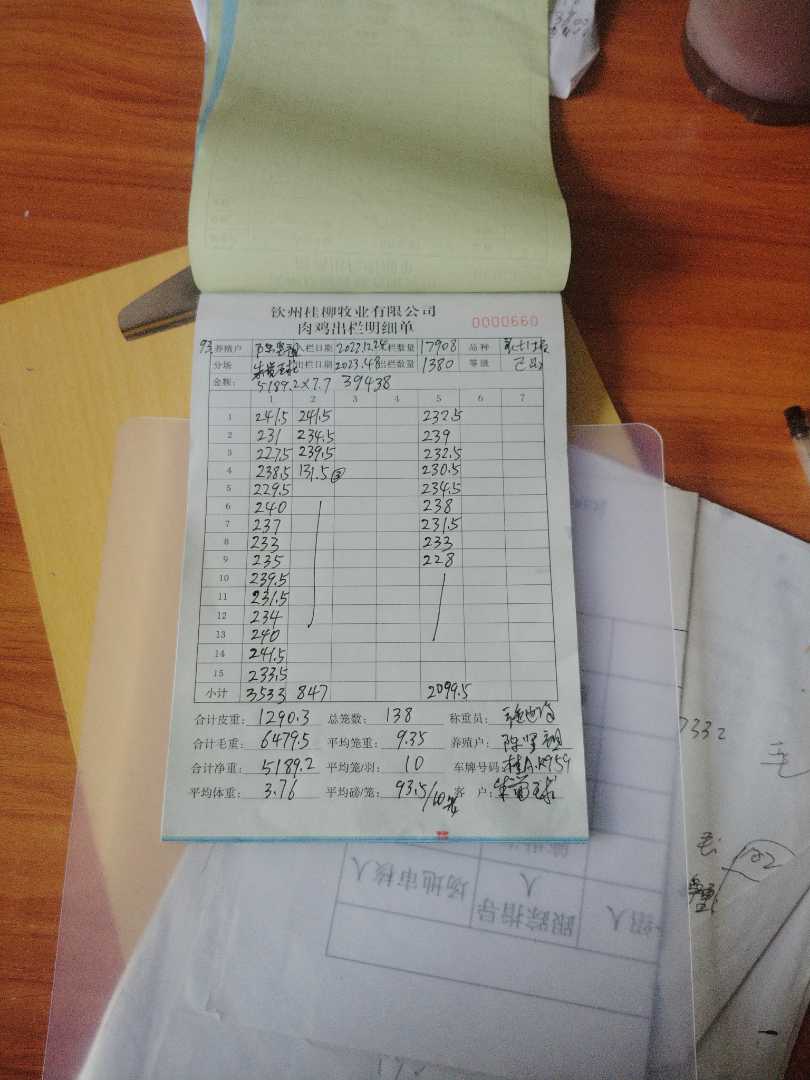 钦州桂柳牧业有限公司
肉鸡出栏明细单 0000660
养殖户 入栏日期 2022.12.24 栏数量 17908 品种
分场 出栏日期 2023.4.8 出栏数量 1380 等级
金额： 5189.2×7.7 39438
1 2 3 4 5 6 7
1 241.5 241.5 232.5
2 231 234.5 239
3 227.5 239.5 232.5
4 238.5 131.5 ③ 230.5
5 229.5 234.5
6 240 238
7 237 231.5
8 233 233
9 235 228
10 239.5
11 231.5
12 234
13 240
14 241.5
15 233.5
小计 3533 847 2099.5
合计皮重： 1290.3 总笼数： 138 称重员：
合计毛重： 6479.5 平均笼重： 9.35 养殖户：
合计净重： 5189.2 平均笼/羽： 10 车牌号码： 桂A·K959
平均体重： 3.76 平均磅/笼： 93.5/10笼 客户：
7332
毛
场地审核人
跟踪指导人